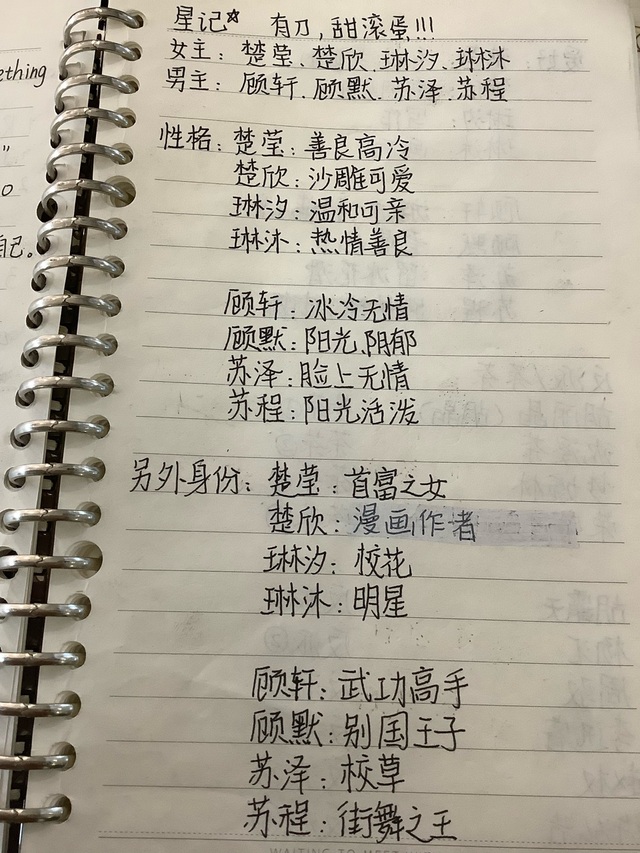 星记☆ 有刀,甜滚蛋!!!
女主:楚莹、楚欣、琳汐、琳沐
男主:顾轩、顾默、苏泽、苏程
ething
性格:楚莹:善良高冷
楚欣:沙雕可爱
琳汐:温和可亲
琳沐:热情善良
自己。
顾轩:冰冷无情
顾默:阳光、阴郁
苏泽:脸上无情
苏程:阳光活泼
另外身份:楚莹:首富之女
楚欣:漫画作者
琳汐:校花
琳沐:明星
顾轩:武功高手
顾默:别国王子
苏泽:校草
苏程:街舞之王